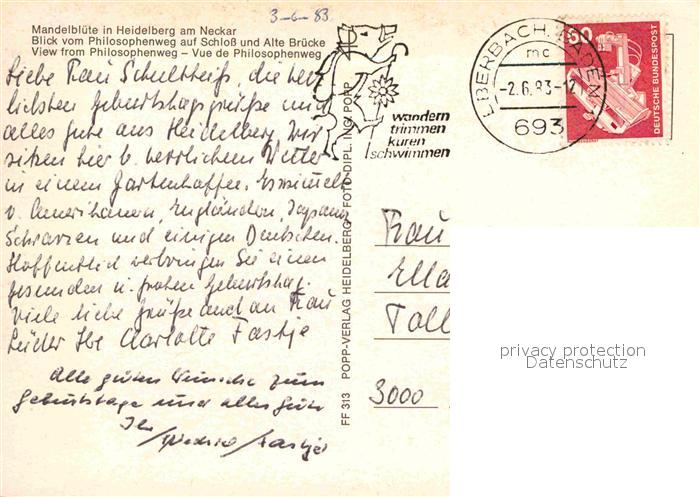 3-6-83
Mandelblüte in Heidelberg am Neckar
Blick vom Philosophenweg auf Schloß und Alte Brücke
View from Philosophenweg – Vue de Philosophenweg
Liebe Frau Schultheiß, die herz
lichsten Geburtstagsgrüße und
alles gute aus Heidelberg. Wir
sitzen hier b. herrlichem Wetter
in einem Gartenkaffee. Es wimmelt
v. Amerikanern, Engländern, Japanern
Schwarzen und einigen Deutschen.
Hoffentlich verbringen Sie einen
gesunden u. frohen Geburtstag.
Viele liebe Grüße auch an Frau
Lüder Ihre Charlotte Fastje
Alle guten Wünsche zum
Geburtstage und alles Gute
Ihr Fastje
FF 313 POPP-VERLAG HEIDELBERG FOTO-DIPL. ING. POPP
wandern
trimmen
kuren
schwimmen
EBERBACH, BADEN
mc
-2.6.83-12
693
60
DEUTSCHE BUNDESPOST
Frau
Ella
Toll
3000
privacy protection
Datenschutz